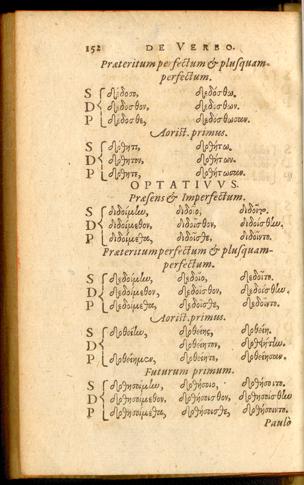 152 DE VERBO.
Præteritum perfectum & plusquam-
perfectum.
S δέδοσο, δεδόσθω.
D δέδοσθον, δεδόσθων.
P δέδοσθε, δεδόσθωσαν.
Aorist. primus.
S δόθητι, δοθήτω.
D δόθητον, δοθήτων.
P δόθητε, δοθήτωσαν.
OPTATIVVS.
Præsens & Imperfectum.
S διδοίμην, διδοῖο, διδοῖτο.
D διδοίμεθον, διδοῖσθον, διδοίσθην.
P διδοίμεθα, διδοῖσθε, διδοῖντο.
Præteritum perfectum & plusquam-
perfectum.
S δεδοίμην, δεδοῖο, δεδοῖτο.
D δεδοίμεθον, δεδοῖσθον, δεδοίσθην
P δεδοίμεθα, δεδοῖσθε, δεδοῖντο.
Aorist. primus.
S δοθείην, δοθείης, δοθείη.
D δοθείητον, δοθειήτην.
P δοθείημεν, δοθείητε, δοθείησαν.
Futurum primum.
S δοθησοίμην, δοθήσοιο, δοθήσοιτο.
D δοθησοίμεθον, δοθήσοισθον, δοθησοίσθην
P δοθησοίμεθα, δοθήσοισθε, δοθήσοιντο.
Paulò